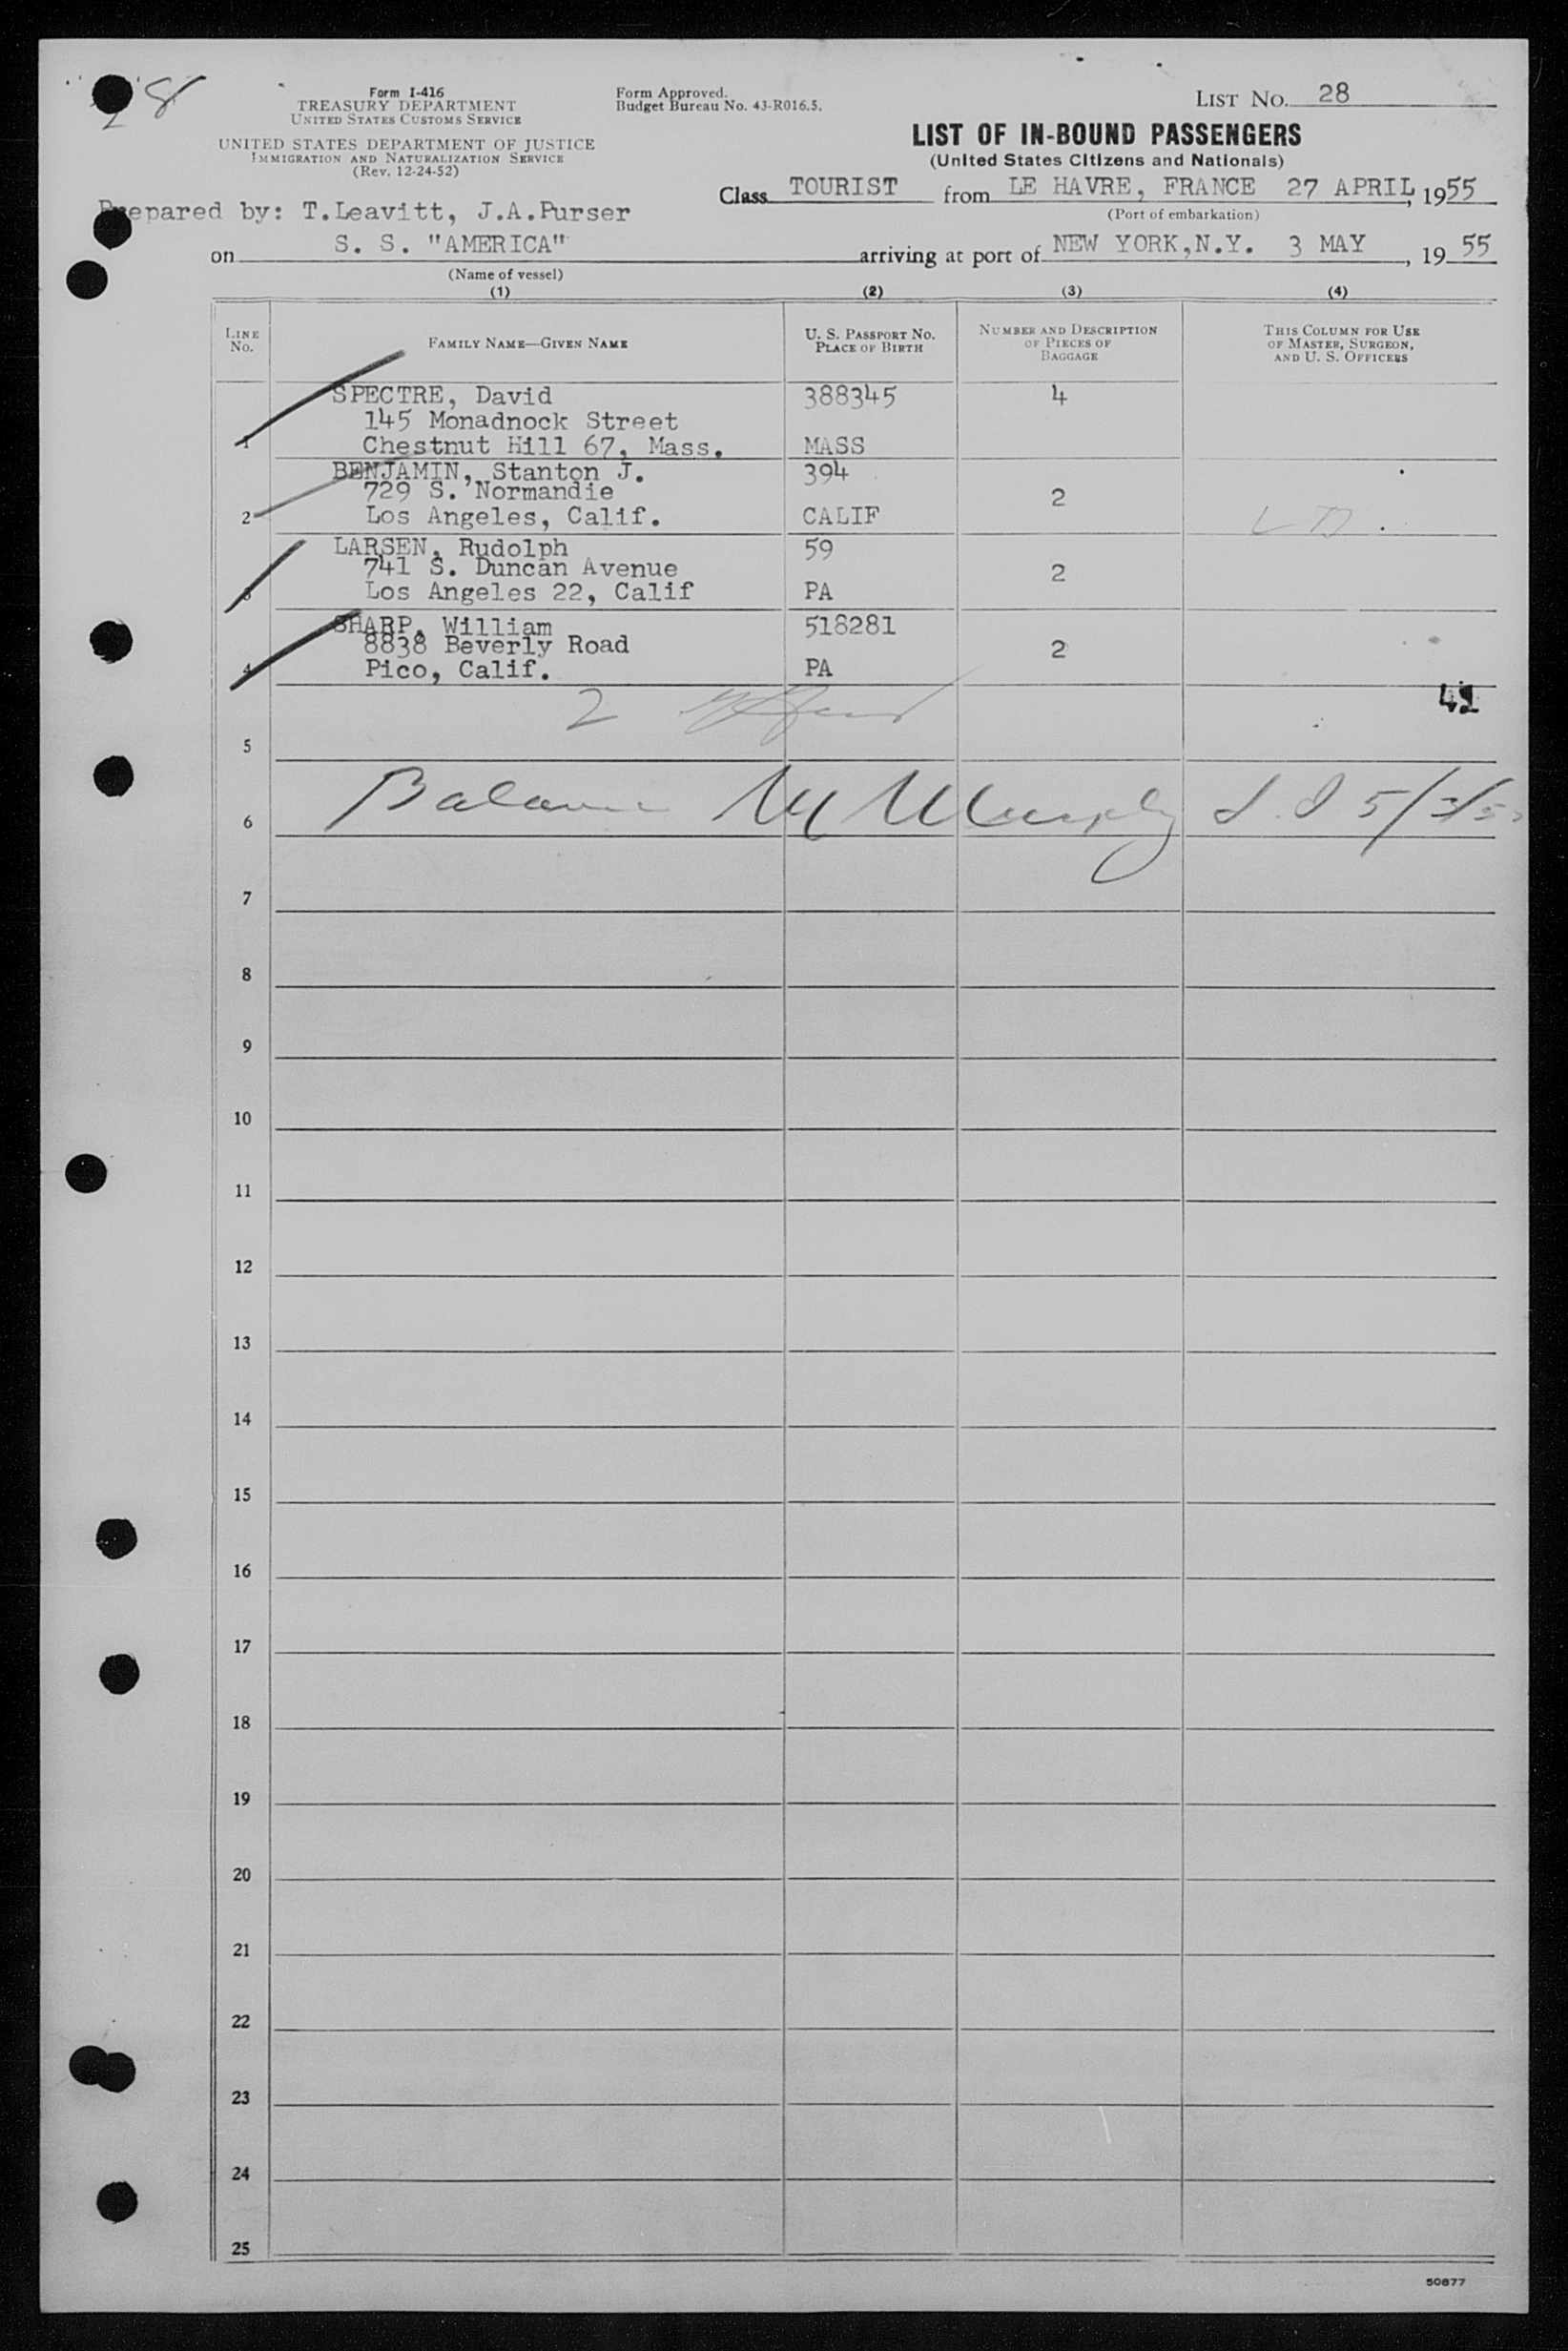 28
Form I-416
TREASURY DEPARTMENT
UNITED STATES CUSTOMS SERVICE
UNITED STATES DEPARTMENT OF JUSTICE
IMMIGRATION AND NATURALIZATION SERVICE
(Rev. 12-24-52)
Form Approved.
Budget Bureau No. 43-R016.5.
LIST NO. 28
LIST OF IN-BOUND PASSENGERS
(United States Citizens and Nationals)
Class TOURIST from LE HAVRE, FRANCE 27 APRIL, 1955
(Port of embarkation)
Prepared by: T.Leavitt, J.A.Purser
on S. S. "AMERICA" arriving at port of NEW YORK,N.Y. 3 MAY, 1955
(Name of vessel)
(1) (2) (3) (4)
LINE NO.
FAMILY NAME—GIVEN NAME
U. S. PASSPORT NO.
PLACE OF BIRTH
NUMBER AND DESCRIPTION
OF PIECES OF
BAGGAGE
THIS COLUMN FOR USE
OF MASTER, SURGEON,
AND U. S. OFFICERS
SPECTRE, David 388345 4
145 Monadnock Street
1 Chestnut Hill 67, Mass. MASS
BENJAMIN, Stanton J. 394
729 S. Normandie 2
2 Los Angeles, Calif. CALIF
LARSEN, Rudolph 59
741 S. Duncan Avenue 2
3 Los Angeles 22, Calif PA
SHARP, William 518281
8838 Beverly Road 2
4 Pico, Calif. PA
2
5
6 Balance Murphy 5/3/55
7
8
9
10
11
12
13
14
15
16
17
18
19
20
21
22
23
24
25
50877